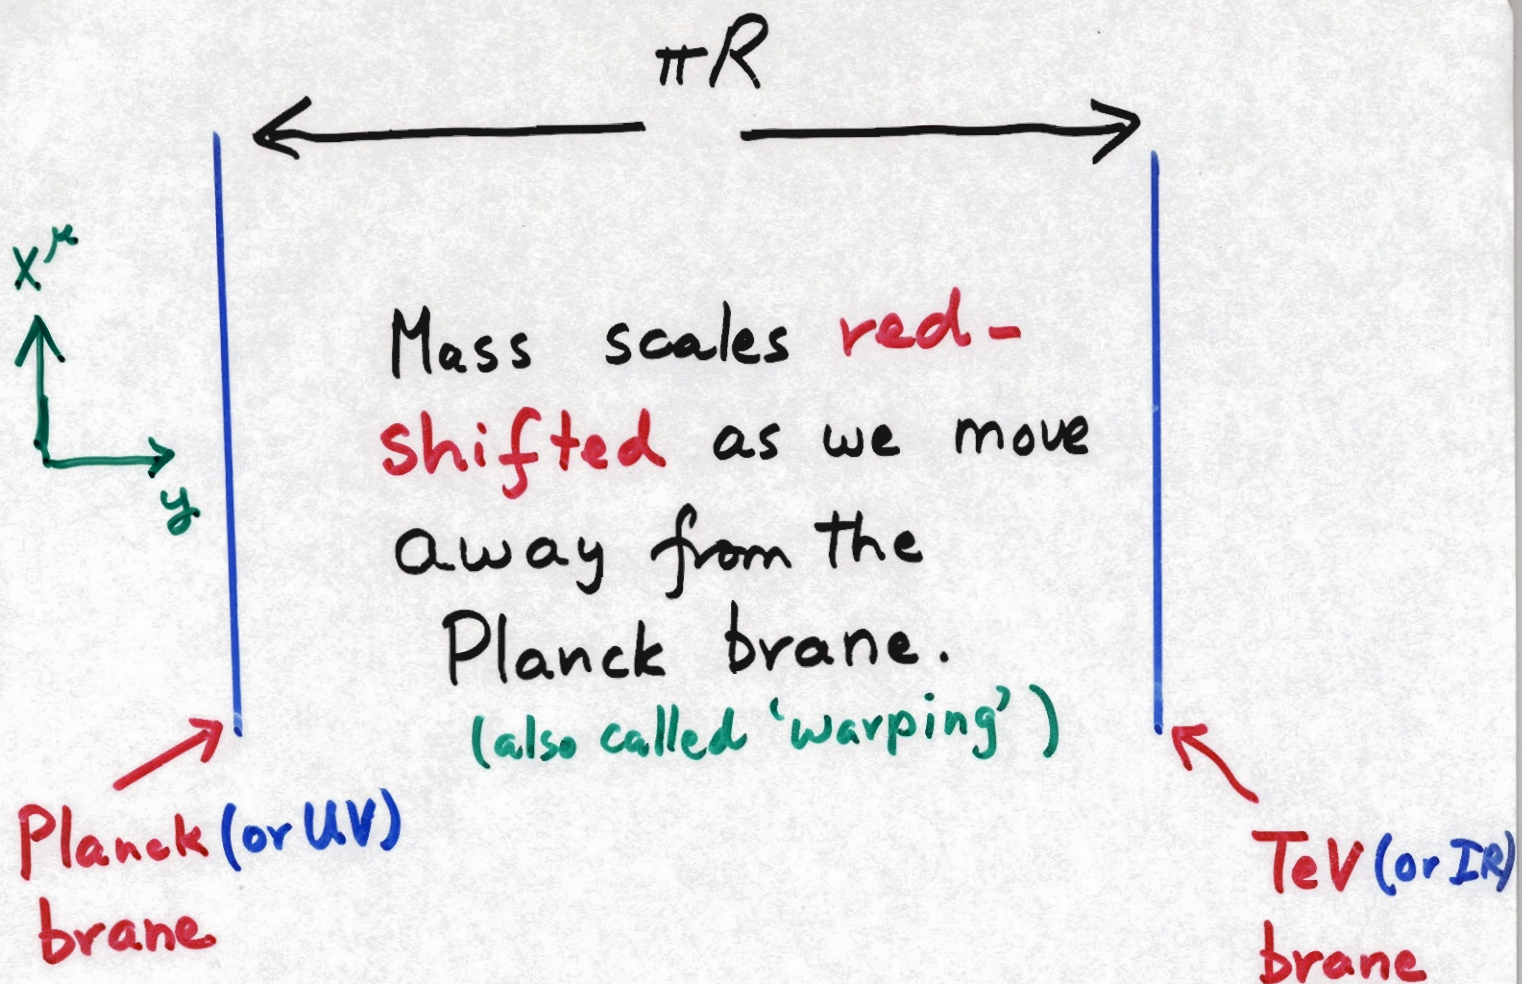 πR
x^μ
y
Mass scales red-
shifted as we move
away from the
Planck brane.
(also called 'warping')
Planck (or UV)
brane
TeV (or IR)
brane